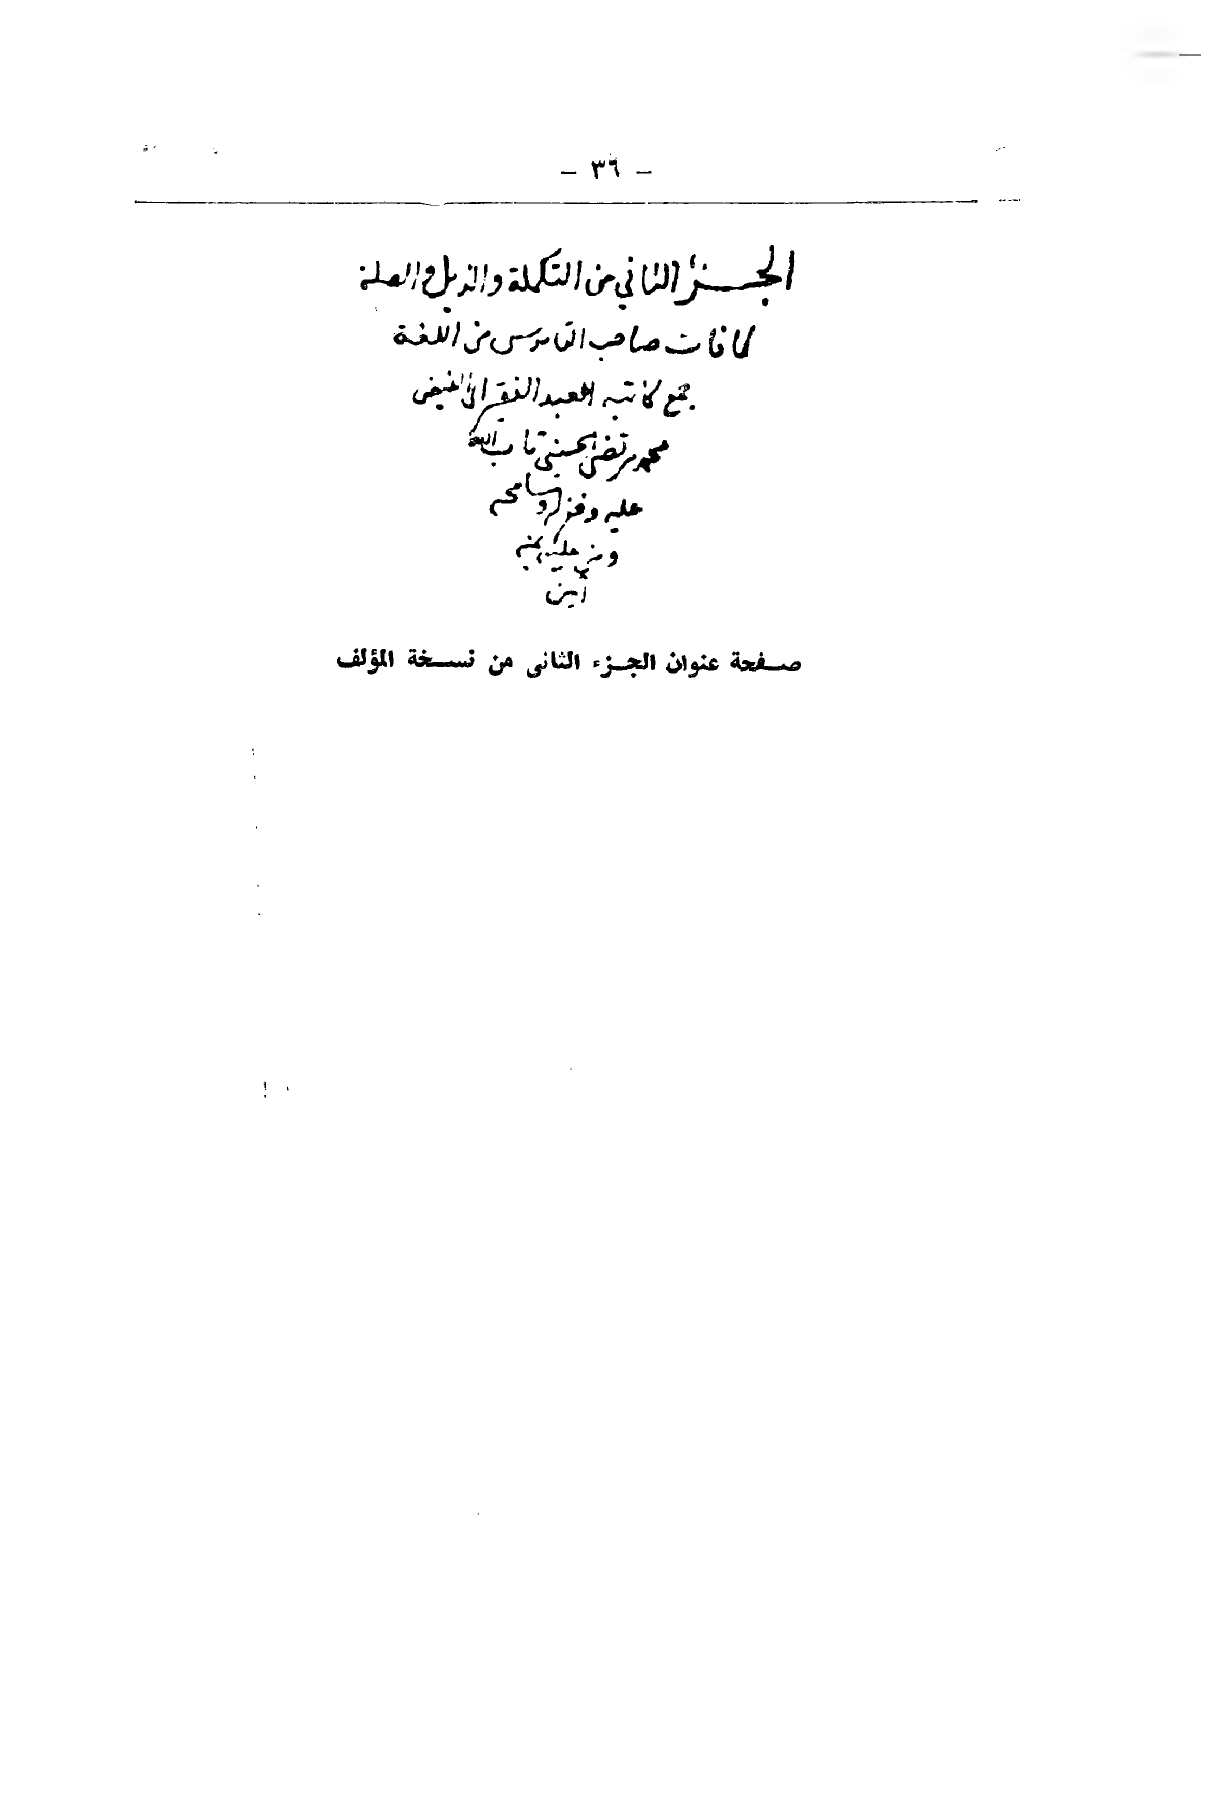 — ٣٦ —
الجزء الثاني من التكملة والذيل والصلة
لما فات صاحب القاموس من اللغة
جمع كاتبه العبد الفقير الى
محمد مرتضى الحسيني تاب الله
عليه وغفر له وسامحه
ومن عليه بمنه
آمين
صفحة عنوان الجزء الثانى من نسخة المؤلف